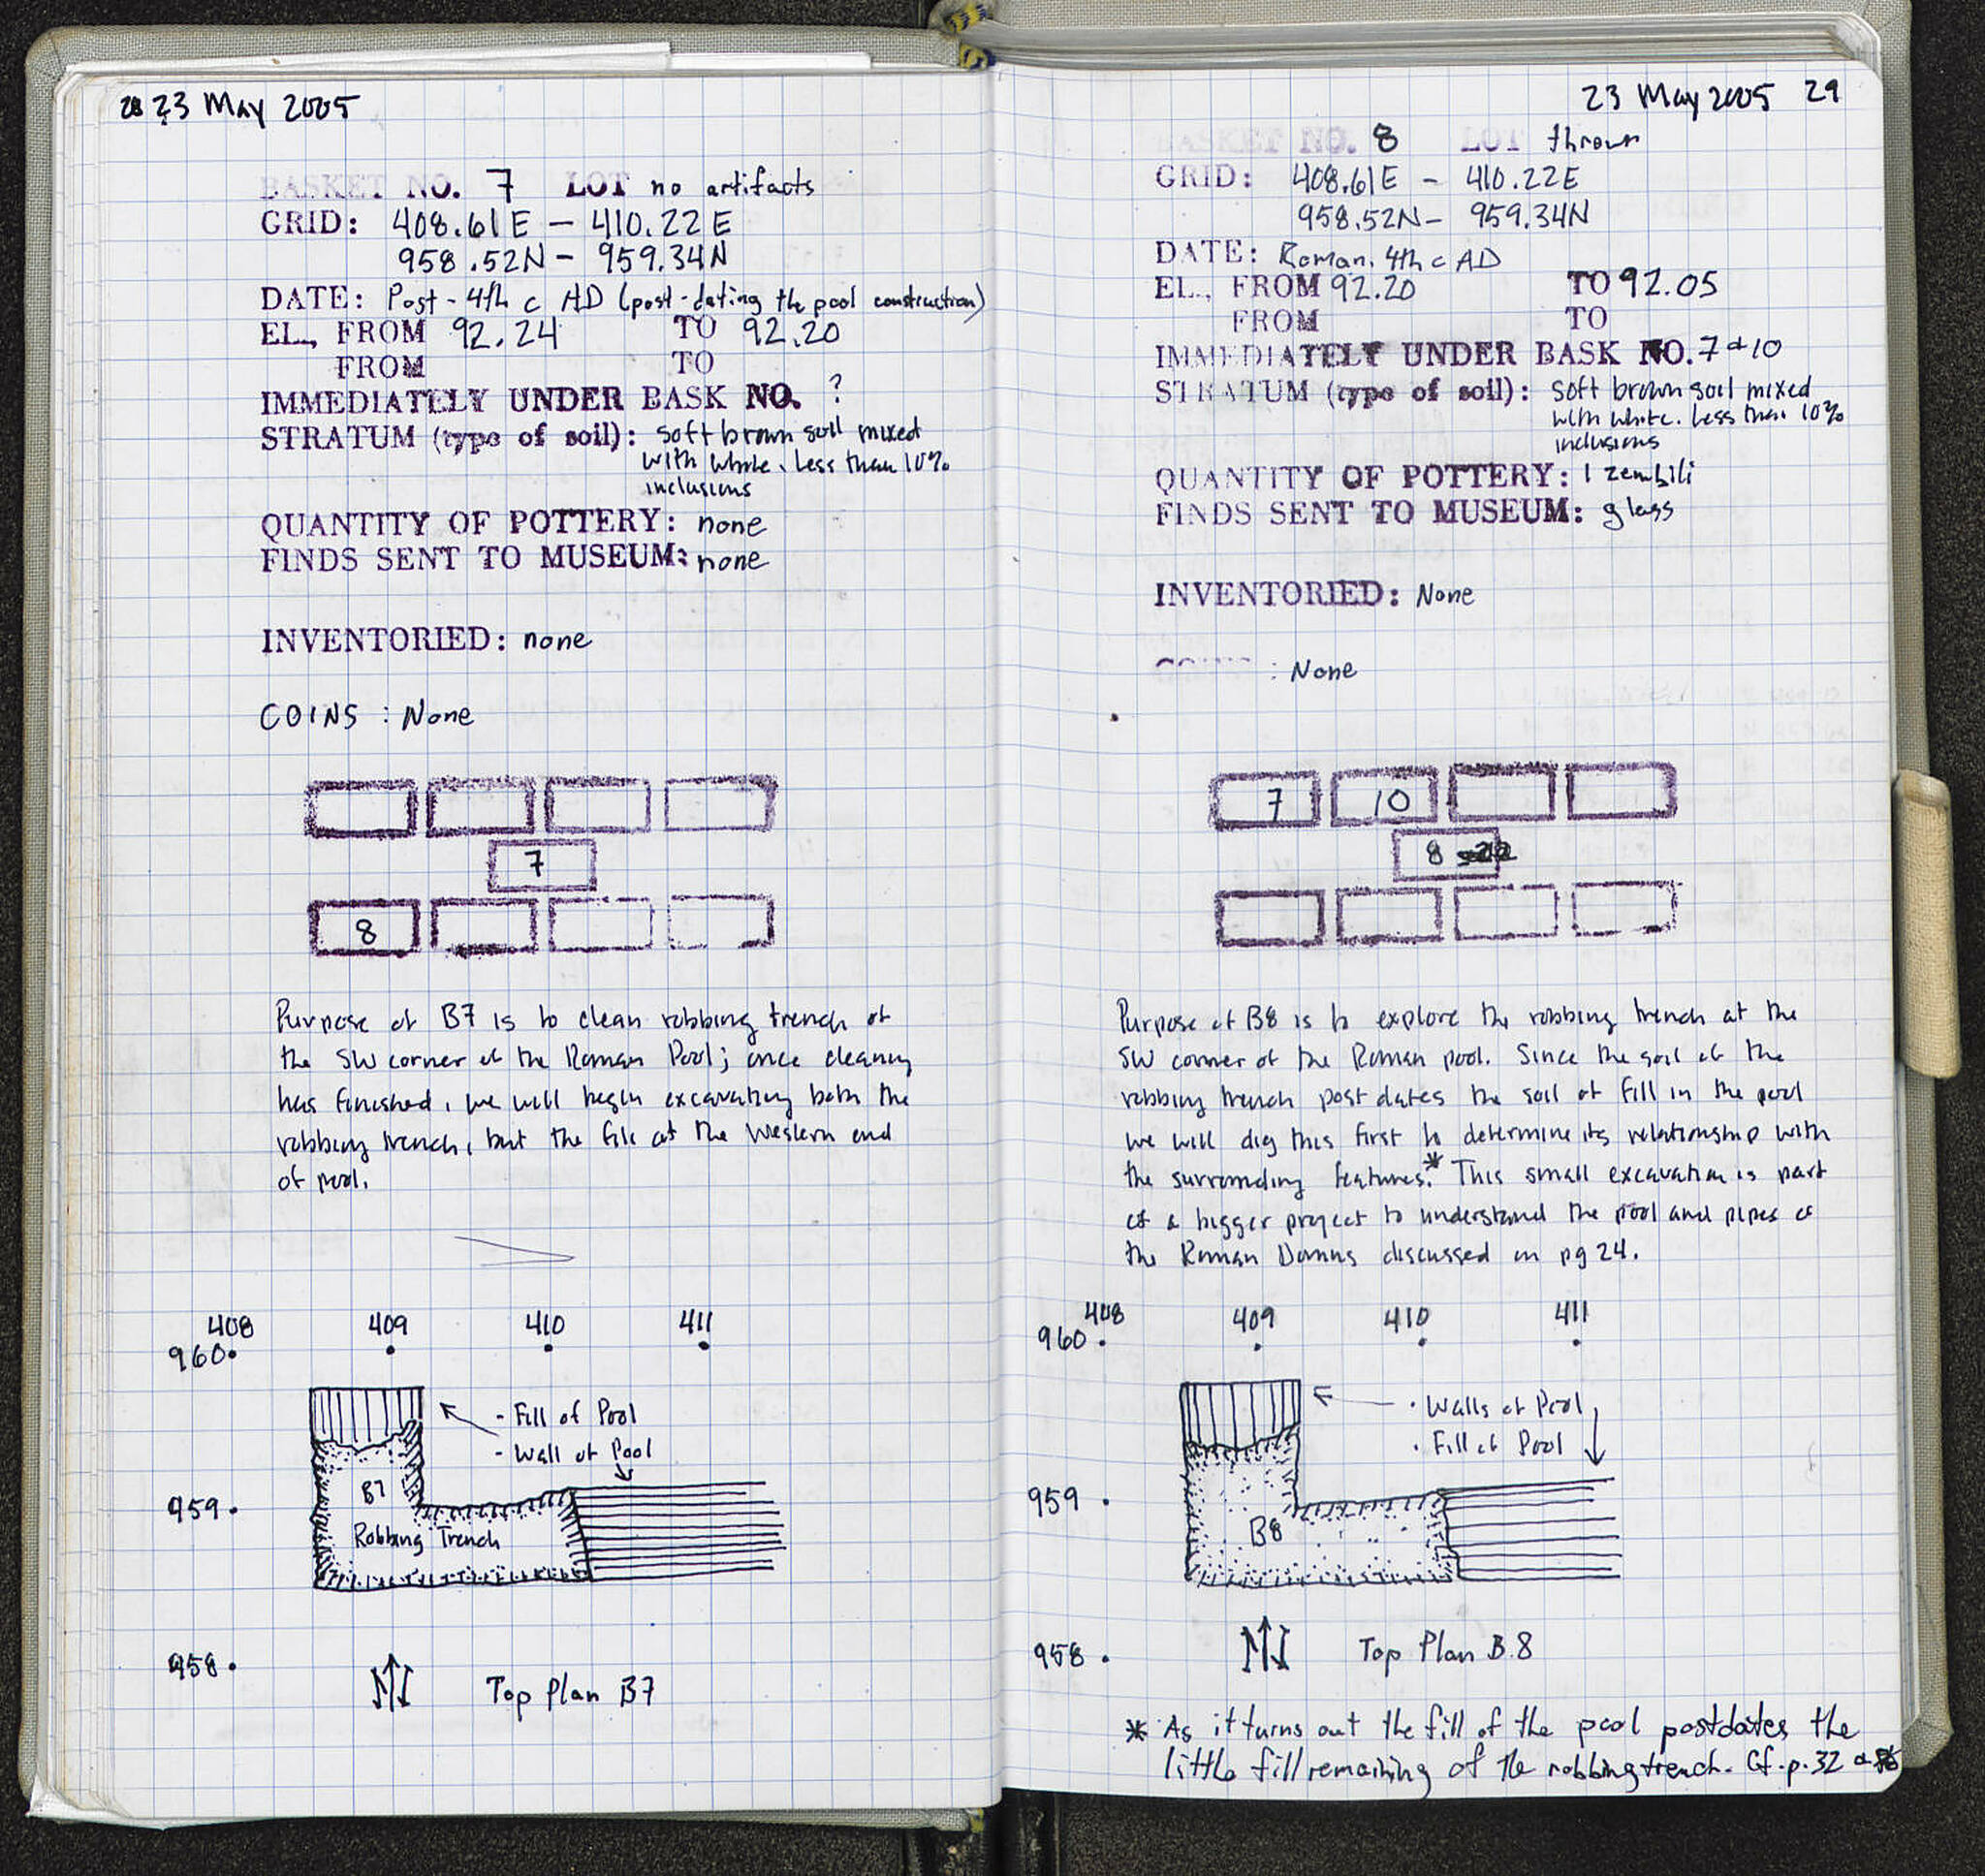 28 23 May 2005
BASKET NO. 7 LOT no artifacts
GRID: 408.61E - 410.22E
958.52N - 959.34N
DATE: Post-4th c AD (post-dating the pool construction)
EL., FROM 92.24 TO 92.20
FROM TO
IMMEDIATELY UNDER BASK NO. ?
STRATUM (type of soil): soft brown soil mixed
with white. Less than 10%
inclusions
QUANTITY OF POTTERY: none
FINDS SENT TO MUSEUM: none
INVENTORIED: none
COINS : None
7
8
Purpose of B7 is to clean robbing trench at
the SW corner of the Roman Pool; once cleaning
has finished, we will begin excavating both the
robbing trench, but the fill at the Western end
of pool.
408 409 410 411
960
- Fill of Pool
- Wall of Pool
B7
959
Robbing Trench
958
Top Plan B7
23 May 2005 29
BASKET NO. 8 LOT thrown
GRID: 408.61E - 410.22E
958.52N - 959.34N
DATE: Roman. 4th c AD
EL., FROM 92.20 TO 92.05
FROM TO
IMMEDIATELY UNDER BASK NO. 7 + 10
STRATUM (type of soil): soft brown soil mixed
with white. Less than 10%
inclusions
QUANTITY OF POTTERY: 1 zembili
FINDS SENT TO MUSEUM: glass
INVENTORIED: None
COINS : None
7 10
8
Purpose of B8 is to explore the robbing trench at the
SW corner of the Roman pool. Since the soil of the
robbing trench post dates the soil of fill in the pool
we will dig this first to determine its relationship with
the surrounding features.* This small excavation is part
of a bigger project to understand the pool and pipes of
the Roman Domus discussed on pg 24.
408 409 410 411
960
· Walls of Pool
· Fill of Pool
959
B8
958
Top Plan B.8
* As it turns out the fill of the pool postdates the
little fill remaining of the robbing trench. Cf. p. 32